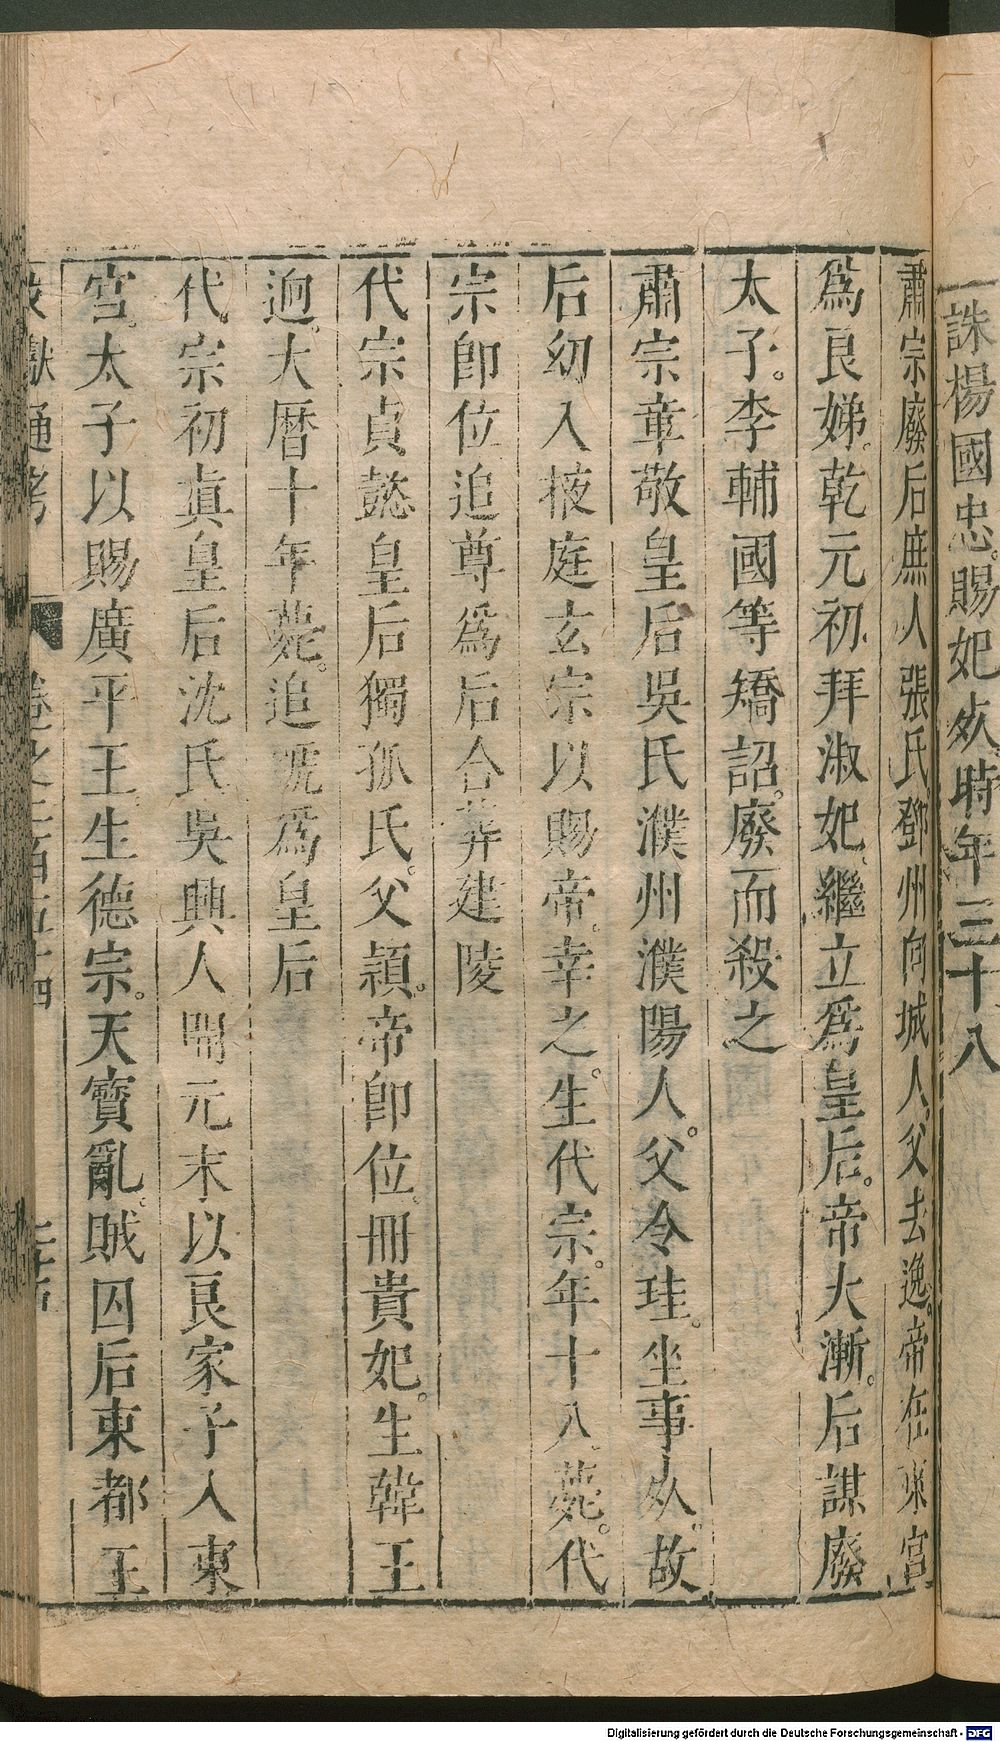 誅楊國忠。賜妃死。時年三十八
肅宗廢后庶人張氏。鄧州向城人。父去逸。帝在東宮
爲良娣。乾元初。拜淑妃。繼立爲皇后。帝大漸。后謀廢
太子。李輔國等矯詔。廢而殺之
肅宗章敬皇后吳氏濮州濮陽人。父令珪。坐事死。故
后幼入掖庭玄宗以賜帝。幸之。生代宗。年十八。薨。代
宗卽位追尊爲后合葬建陵
代宗貞懿皇后獨孤氏。父頴。帝卽位。冊貴妃。生韓王
逈。大曆十年薨。追號爲皇后
代。宗初眞皇后沈氏吳興人開元末以良家子入東
宮。太子以賜廣平王。生德宗。天寶亂。賊囚后東都王
獻通考 卷之二百五十四